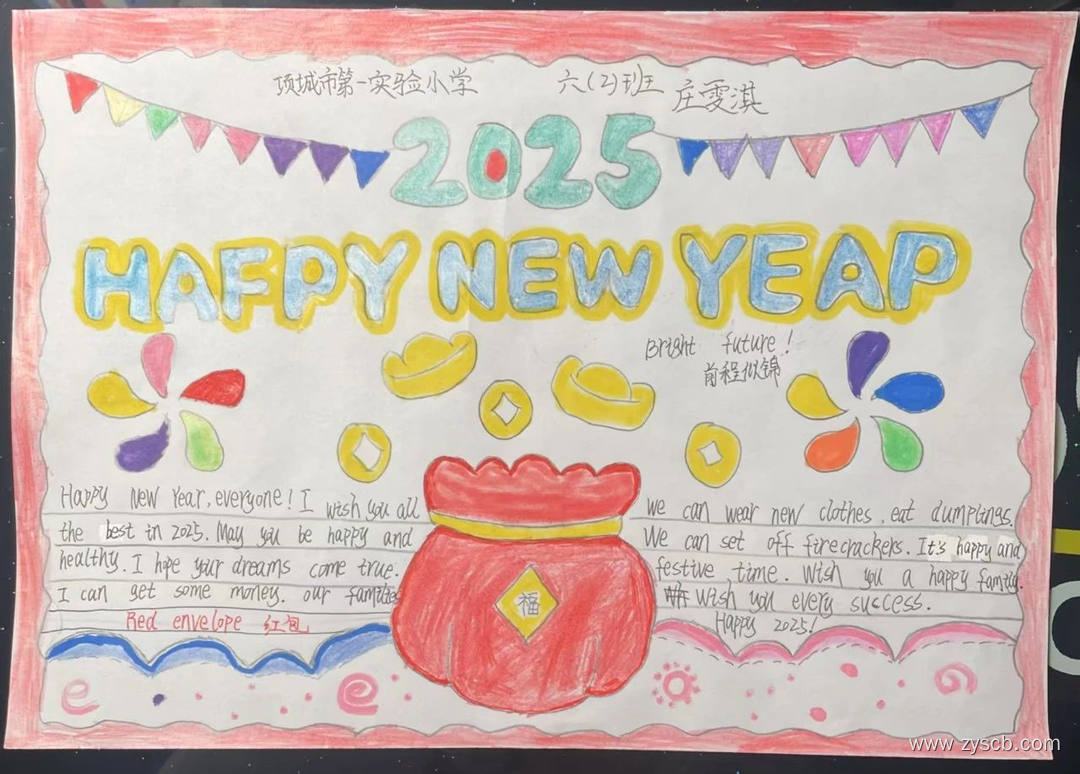 项城市第一实验小学 六(2)班 庄雯淇
2025
HAPPY NEW YEAP
Bright future!
前程似锦
Happy New Year, everyone! I wish you all
the best in 2025. May you be happy and
healthy. I hope your dreams come true.
I can get some money. our families
Red envelope 红包
福
We can wear new clothes, eat dumplings.
We can set off firecrackers. It's happy and
festive time. Wish you a happy family.
Wish you every success.
Happy 2025!
www.zyscb.com